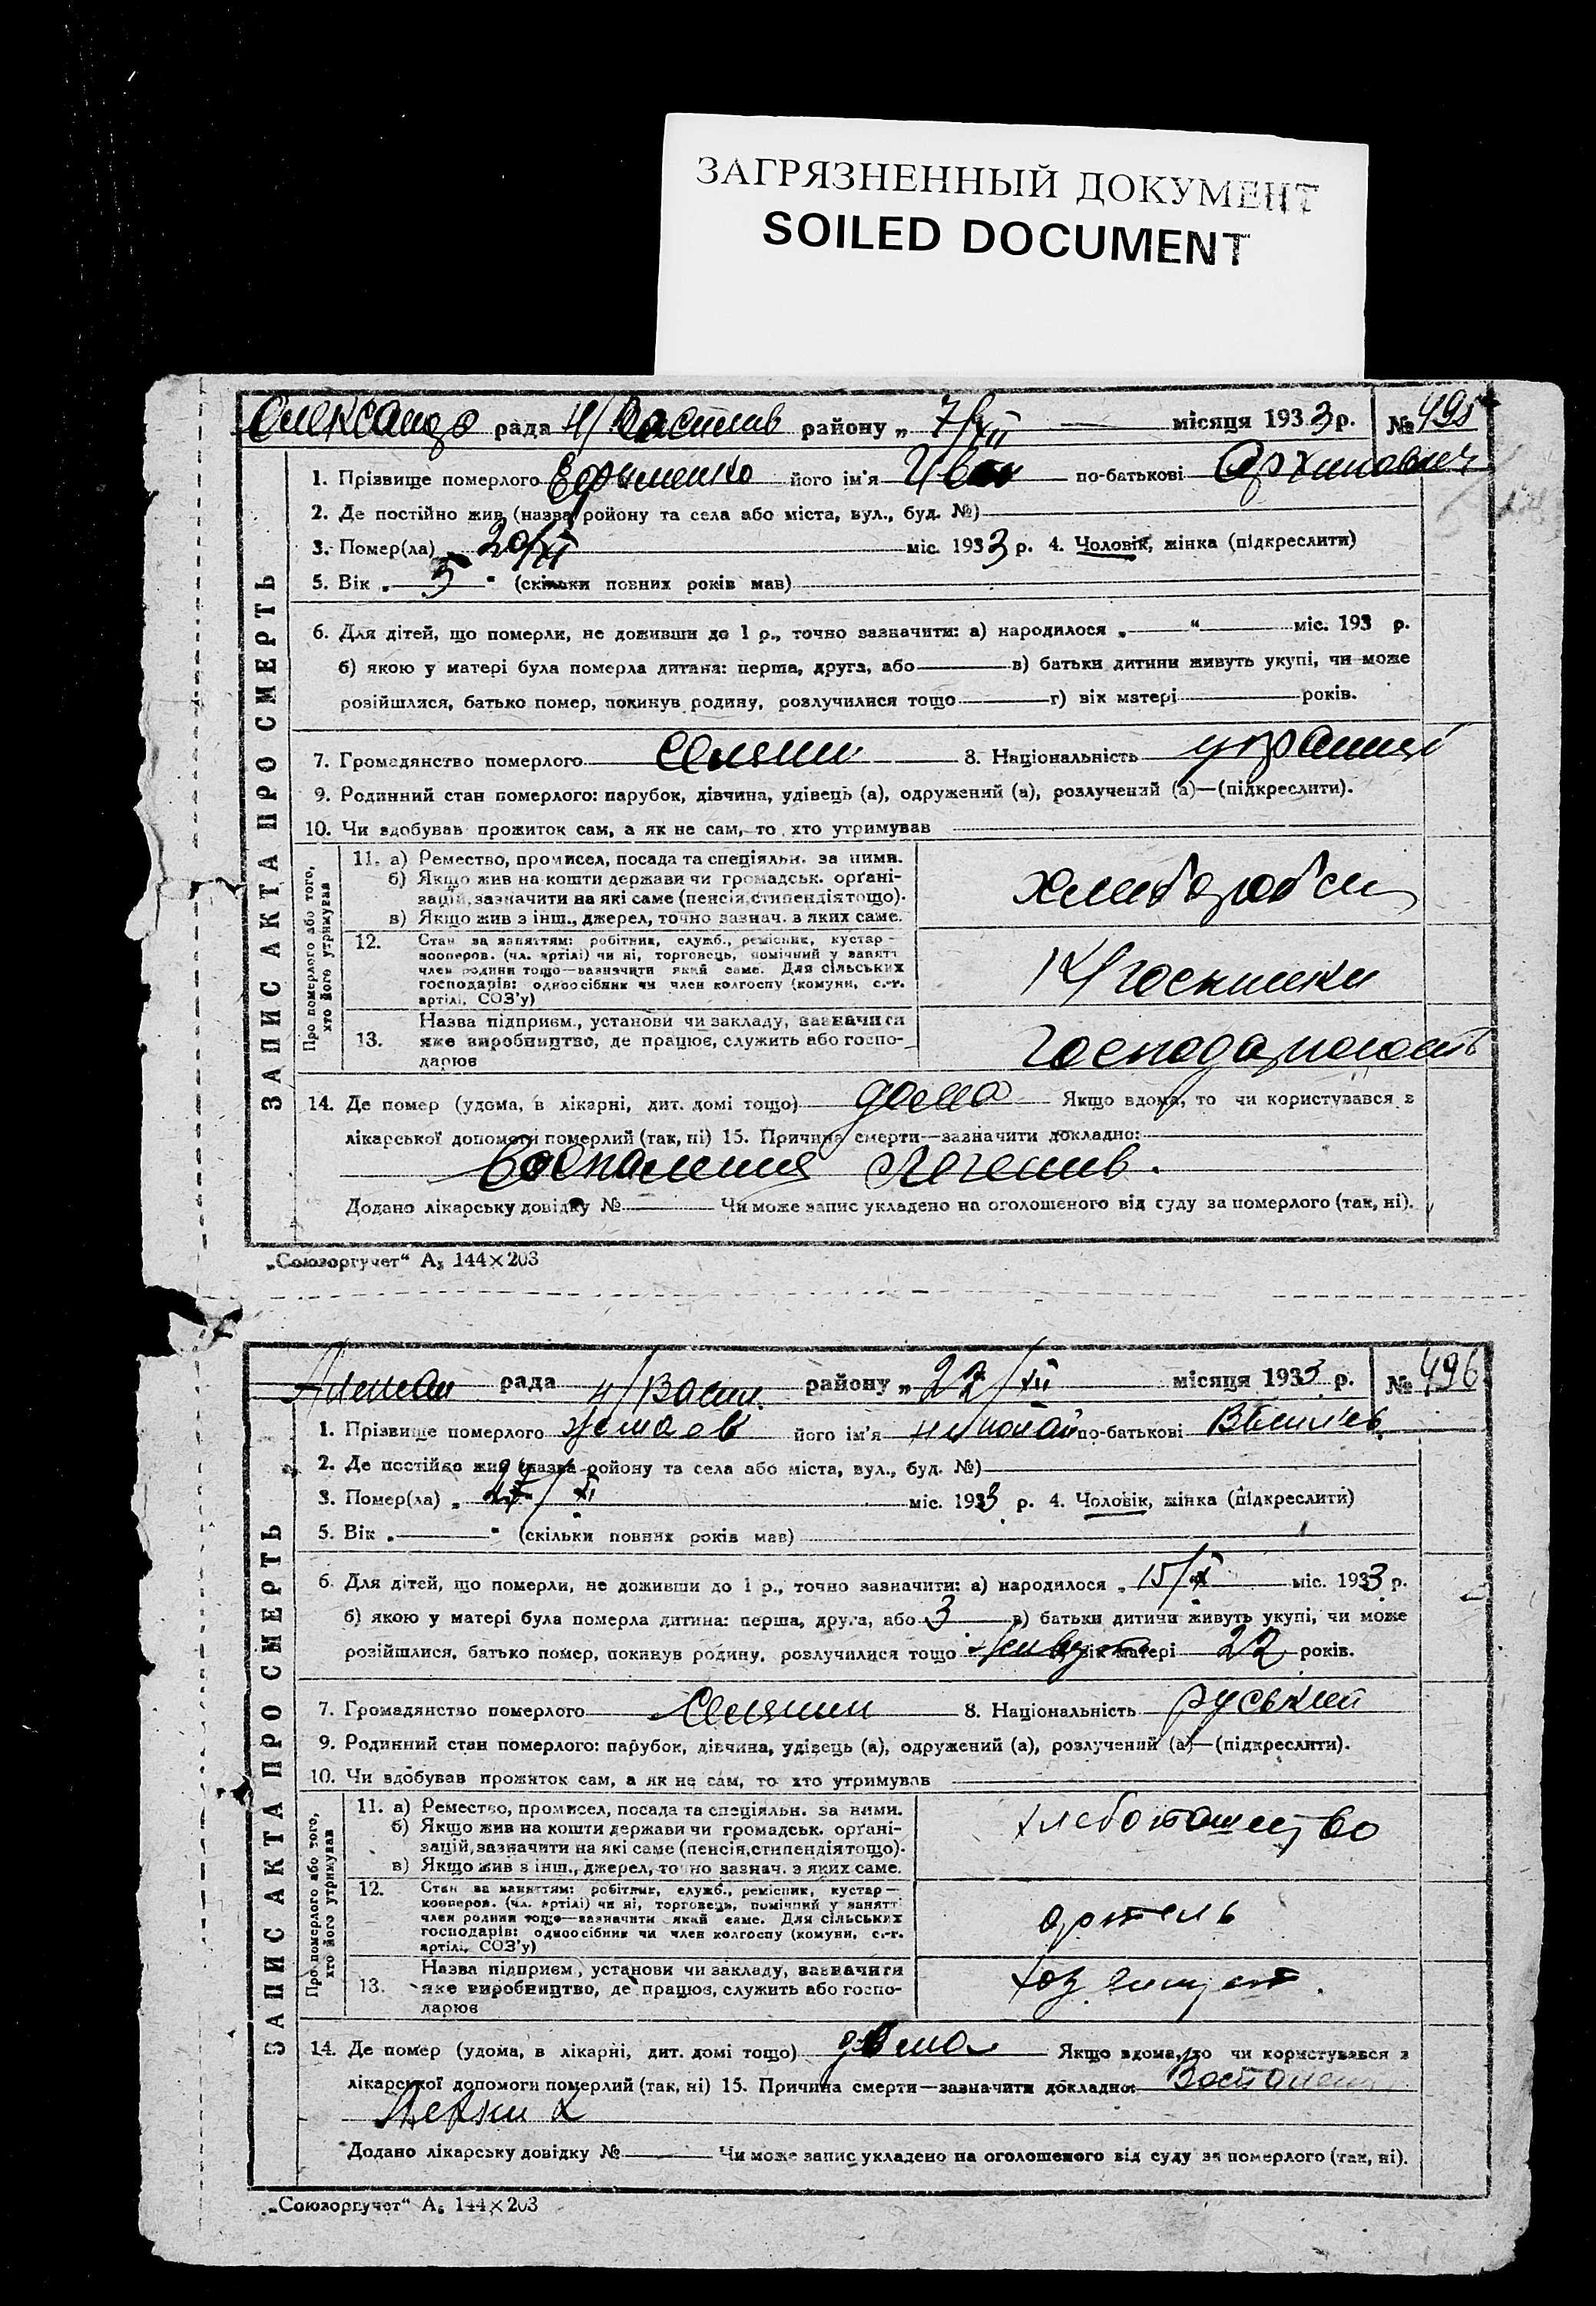 ЗАГРЯЗНЕННЫЙ ДОКУМЕНТ
SOILED DOCUMENT
рада Н/ района „ 7/XII місяця 1933 р. № 495
1. Прізвище померлого Ефименко його ім'я Иван по-батькові Архипович
2. Де постійно жив (назва ройону та села або міста, вул., буд. №)
3. Помер(ла) „ 20/XI міс. 1933 р. 4. Чоловік, жінка (підкреслити)
5. Вік „ 5 " (скільки повних років мав)
6. Для дітей, що померли, не доживши до 1 р., точно зазначити: а) народилося „ " міс. 193 р.
б) якою у матері була померла дитина: перша, друга, або в) батьки дитини живуть укупі, чи може
розійшлися, батько помер, покинув родину, розлучилися тощо г) вік матері років.
7. Громадянство померлого селянин 8. Національність
9. Родинний стан померлого: парубок, дівчина, удівець (а), одружений (а), розлучений (а)—(підкреслити).
10. Чи здобував прожиток сам, а як не сам, то хто утримував
ЗАПИС АКТА ПРО СМЕРТЬ
Про померлого або того, хто його утримував
11. а) Ремество, промисел, посада та спеціяльн. за ними.
б) Якщо жив на кошти держави чи громадськ. орґані-
зацій, зазначити на які саме (пенсія, стипендія тощо).
в) Якщо жив з інш., джерел, точно зазнач. з яких саме.
12. Стан за заняттям: робітник, служб., ремісник, кустар—
кооперов. (чл. артілі) чи ні, торговець, помічний у занятт
член родини тощо—зазначити який саме. Для сільських
господарів: одноосібник чи член колгоспу (комуни, с.-г.
артілі, СОЗ'у)
13. Назва підприєм., установи чи закладу, зазначити
яке виробництво, де працює, служить або госпо-
дарює
14. Де помер (удома, в лікарні, дит. домі тощо) дома Якщо вдома, то чи користувався з
лікарської допомоги померлий (так, ні) 15. Причина смерти—зазначити докладно:
Воспаления легенив.
Додано лікарську довідку № Чи може запис укладено на оголошеного від суду за померлого (так, ні).
„Союзоргучет" А5 144×203
рада Н/Васил. району „ 22/XII місяця 1933 р. № 496
1. Прізвище померлого його ім'я Николай по-батькові
2. Де постійно жив (назва ройону та села або міста, вул., буд. №)
3. Помер(ла) „ XI міс. 1933 р. 4. Чоловік, жінка (підкреслити)
5. Вік „ " (скільки повних років мав)
6. Для дітей, що померли, не доживши до 1 р., точно зазначити: а) народилося „ 15/X міс. 1933 р.
б) якою у матері була померла дитина: перша, друга, або 3 в) батьки дитини живуть укупі, чи може
розійшлися, батько помер, покинув родину, розлучилися тощо живут вік матері 22 років.
7. Громадянство померлого Селянин 8. Національність руський
9. Родинний стан померлого: парубок, дівчина, удівець (а), одружений (а), розлучений (а)—(підкреслити).
10. Чи здобував прожиток сам, а як не сам, то хто утримував
ЗАПИС АКТА ПРО СМЕРТЬ
Про померлого або того, хто його утримував
11. а) Ремество, промисел, посада та спеціяльн. за ними.
б) Якщо жив на кошти держави чи громадськ. орґані-
зацій, зазначити на які саме (пенсія, стипендія тощо).
в) Якщо жив з інш., джерел, точно зазнач. з яких саме.
12. Стан за заняттям: робітник, служб., ремісник, кустар—
кооперов. (чл. артілі) чи ні, торговець, помічний у занятт
член родини тощо—зазначити який саме. Для сільських
господарів: одноосібник чи член колгоспу (комуни, с.-г.
артілі, СОЗ'у)
артель
13. Назва підприєм., установи чи закладу, зазначити
яке виробництво, де працює, служить або госпо-
дарює
14. Де помер (удома, в лікарні, дит. домі тощо) дома Якщо вдома, то чи користувався з
лікарської допомоги померлий (так, ні) 15. Причина смерти—зазначити докладно:
Додано лікарську довідку № Чи може запис укладено на оголошеного від суду за померлого (так, ні).
„Союзоргучет" А5 144×203